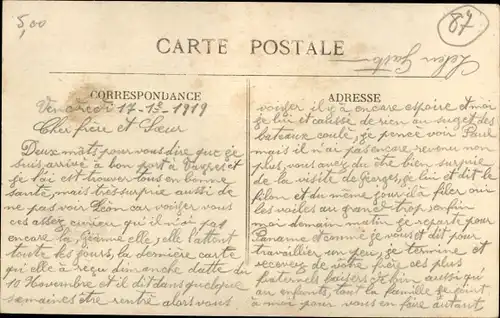 5,00
87
CARTE POSTALE
CORRESPONDANCE
ADRESSE
Vendredi 17-1=-1919
Cher frère et Sœur
Deux mots pour vous dire que je
suis arrivé à bon port à et
je lai est trouver tous en bonne
santé, mais très surprie aussi de
ne pas voir Léon car voyiser vous
ces assez curieu qu'il n'i pas
encore la, Jeanne elle, elle l'attent
toute les jours, la dernière carte
qu'elle à reçu dimanche datte du
10 Novembre et il dit dans quelque
semaines être rentré alors vous
voyiser il y à encore espoire et moi
je lui et calisse de rien au suget des
bateaux coulé, je pencé voir Paul
mais il n'ai pas encare revenu non
plus, vous avez du être bien surprie
de la visite de Georges, je lui et dit le
filon et du même jour il à filer oui
les voiles au grand trop, enfin
moi demain matin je reparte pour
Paname comme je vous et dit pour
travailler un peu, je termine et
recevez de votre frère ces plus
fraternels baisers de bien aussi qui
au enfants, tout la famille se joint
à moi pour vous en faire autant